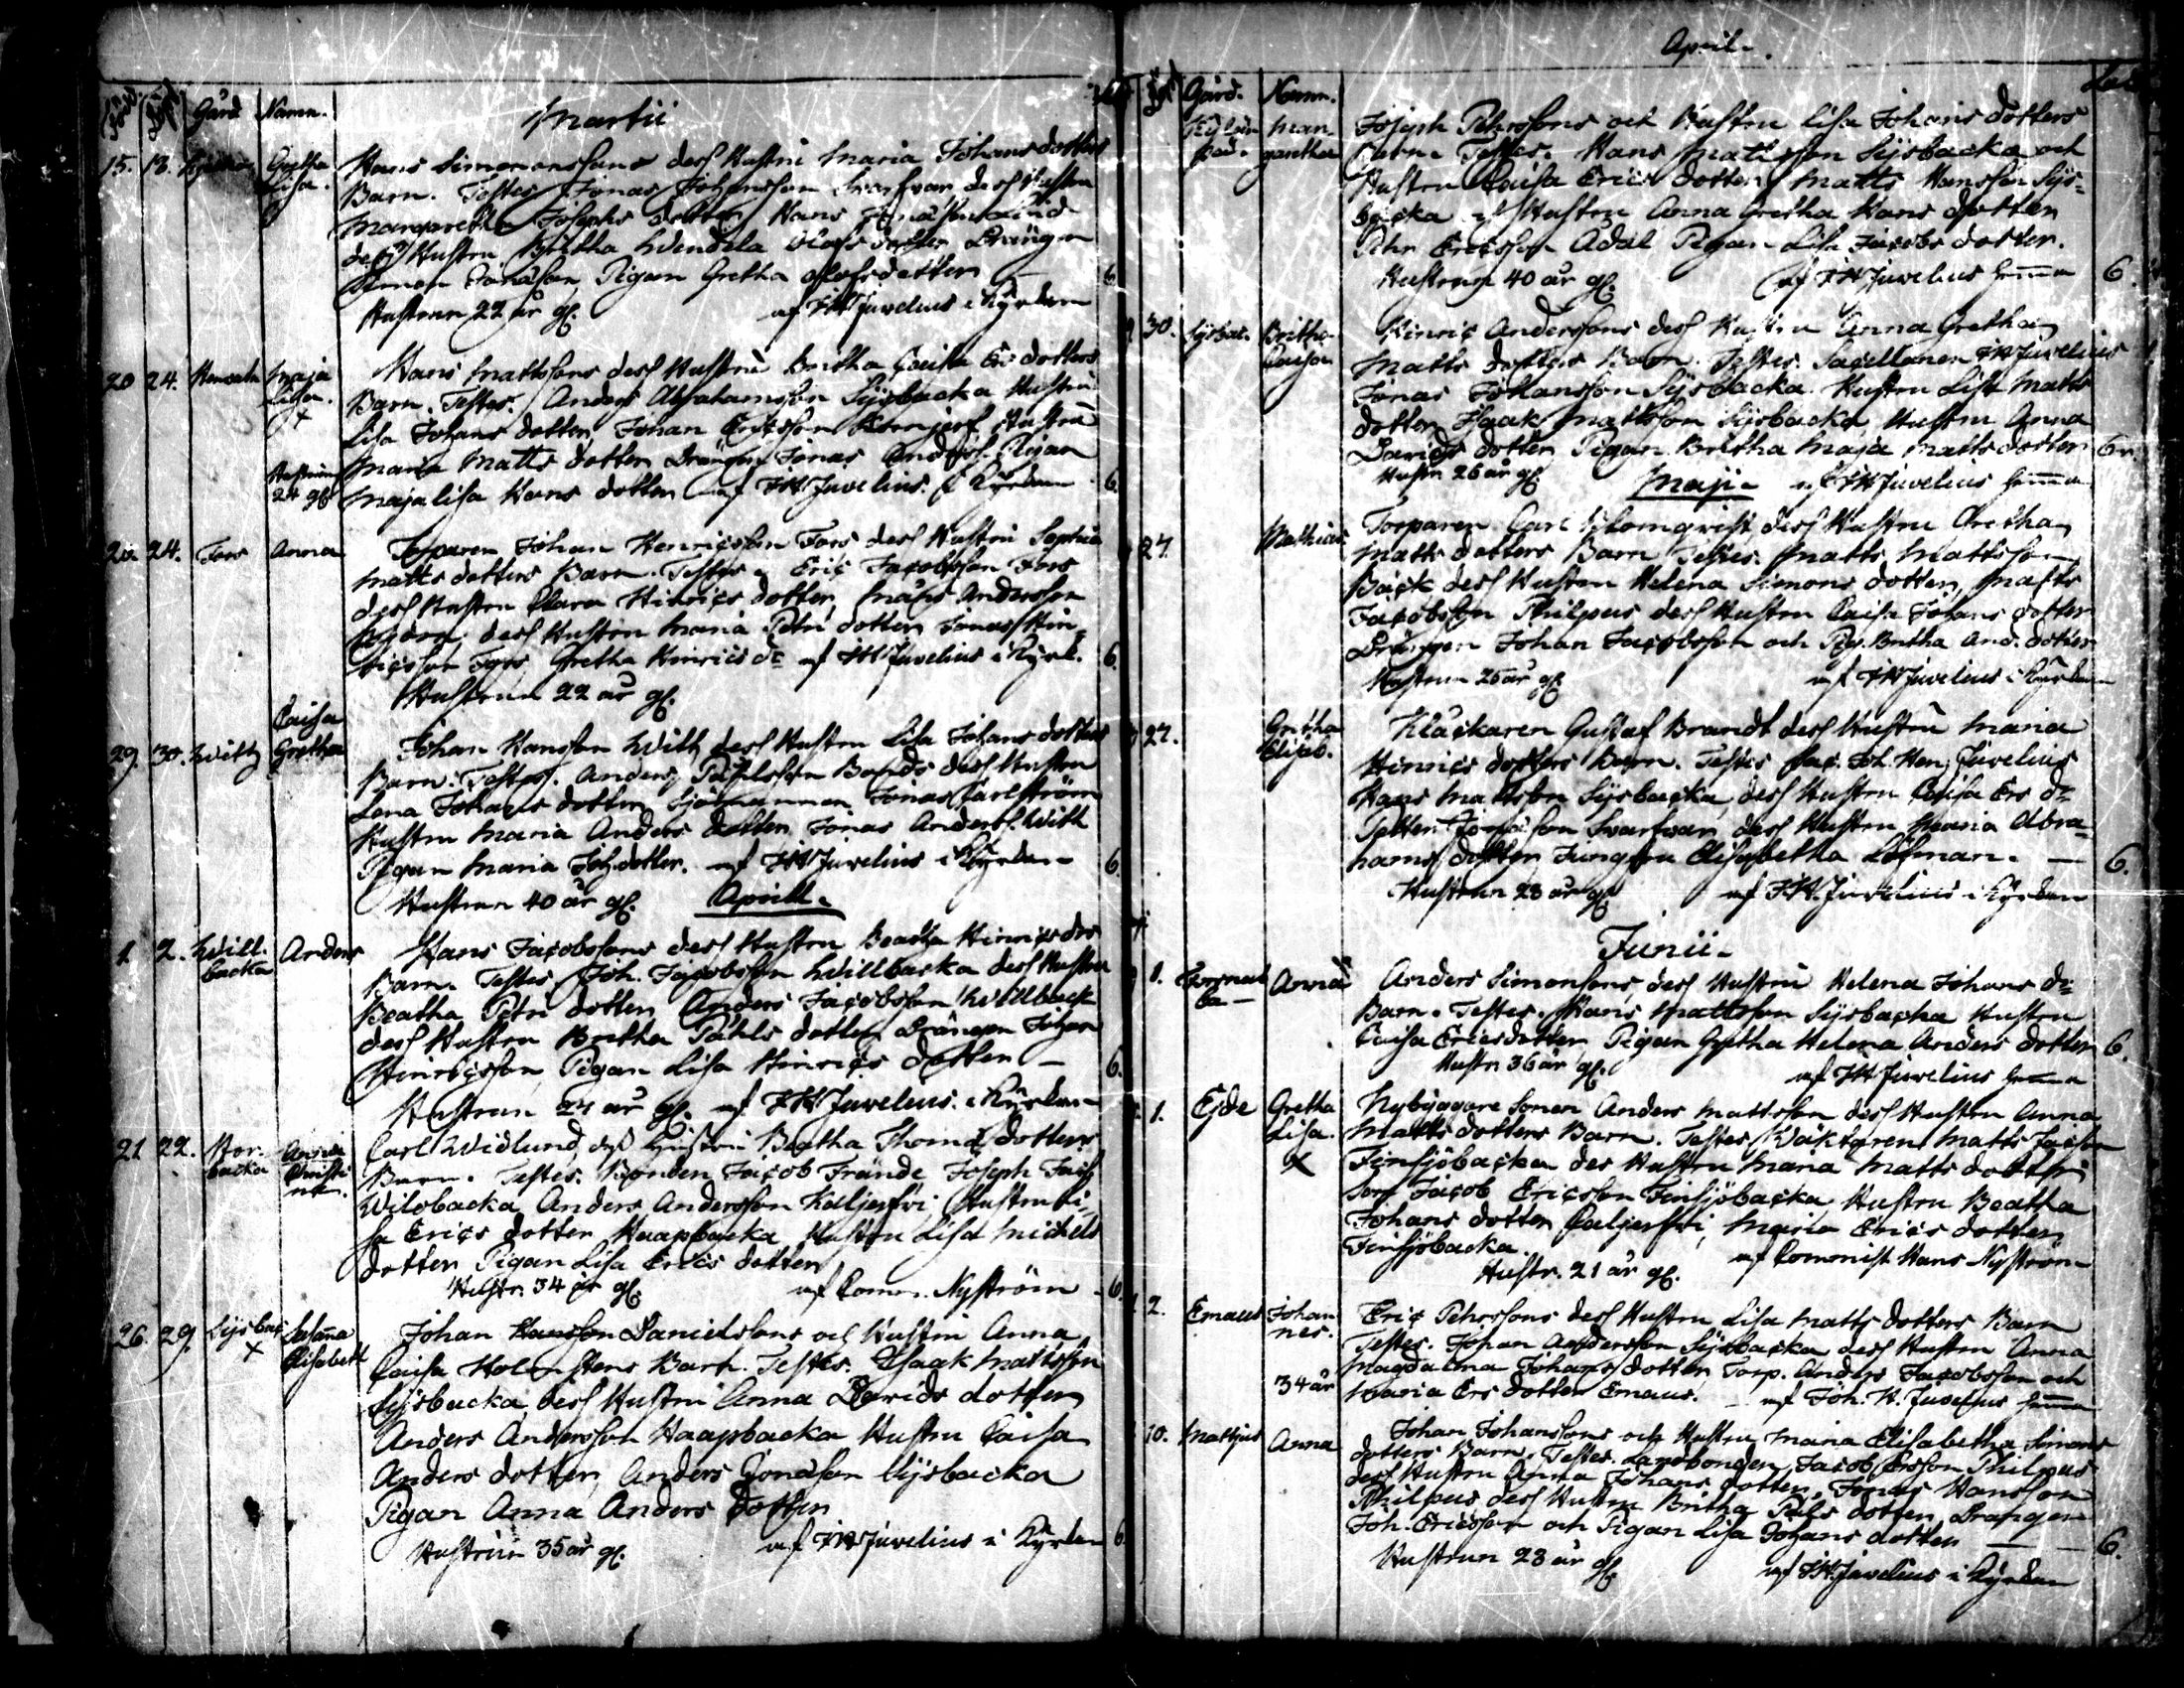 Gård Namn.
Martii
15. 18. Gretha Lisa. Hans Simonssons dess Hustru Maria Johansdotters
Barn. Testes. Jonas Johansson Svarfvar dess Hustru
Margareth Josephs dotter Hans Lind
dess Hustru Britha Wendela Olofs dotter Drängen
Pigan Gretha Olofsdotter
Hustrun 22 år gl. af JHJuvelius i Kyrkan 6
20 24. Maja Lisa. Hans Mattssons dess Hustru Britha Caisa Ers dotters
Barn. Testes. Anders Abrahamsson Sysbacka Hustru
Lisa Johans dotter, Johan Ericsson Hustru
Maria Matts dotter Drängen Jonas Anderss. Pigan
Hustrun 24 gl. Maja Lisa Hans dotter af JHJuvelius i Kyrkan 6.
24. Fors Anna Torparen Johan Henricsson Fors dess Hustru Sophia
Matts dotters Barn. Testes. Eric Jacobsson Fors
dess Hustru Clara Hinrics dotter, Måns Andersson
dess Hustru Maria Petri dotter Jonas Hin-
ricsson Fors Gretha Hinrics dr af JHJuvelius i Kyrk. 6.
Hustrun 22 år gl.
29 30. Caisa Gretha Johan Hansson dess Hustru Lisa Johans dotters
Barn. Testes. Anders Påhlsson dess Hustru
Lena Johans dotter, Sjömannen Jonas Carlström
Hustru Maria Anders dotter Jonas Anderss.
Pigan Maria Joh.dotter. af JHJuvelius i Kyrkan 6
Hustrun 40 år gl. Aprill.
1 2. Willbacka Anders Hans Jacobssons dess Hustru Beatha Hinrics drs
Barn. Testes. Joh. Jacobsson Willbacka dess Hustru
Beatha Petri dotter Anders Jacobsson Willback
dess Hustru Britha Påhls dotter Drängen Johan
Hinricsson, Pigan Lisa Hinrics dotter – 6.
Hustrun 24 år gl. af JHJuvelius i Kyrkan
21 22. Storbacka Anna Christina. Carl Widlund, dess Hustru Beatha Thomæ dotters
Barn. Testes. Bonden Jacob Frände Joseph
Anders Andersson Kaljerfvi Hustru Li-
sa Erics dotter Haapbacka Hustru Lisa Michels
dotter Pigan Lisa Erics dotter
Hustr. 34 år gl. af Comm. Nyström 6.
26. 29. Sysbac Susanna Elisabeth Johan Hansson Danielssons och Hustru Anna
Caisa Holmstens Barn. Testes. Isaak Mattsson
Sysbacka, dess Hustru Anna Davids dotter
Anders Andersson Haapbacka Hustru Caisa
Anders dotter, Anders Jonasson Sysbacka
Pigan Anna Anders dotter
Hustrun 35 år gl. af JHJuvelius i Kyrkan 6
April.
Gård. Namn.
Margaretha Joseph Pehrssons och Hustru Lisa Johans dotters
Barn. Testes. Hans Mattsson Sysbacka och
Hustru Caisa Erics dotter, Matts Hansson Sys-
backa Hustru Anna Gretha Hans dotter
Pehr Ericsson Ådal Pigan Lisa Jacobs dotter.
Hustrun 40 år gl. af JHJuvelius hemma 6.
30. Sysbac. Britha Caisa Hinric Anderssons dess Hustru Anna Gretha
Matts dotters Barn. Testes. Sacellanen JHJuvelius
Jonas Johansson Sysbacka. Hustru Lisa Matts
dotter Isaak Mattsson Sysbacka Hustru Anna
Davids dotter Pigan Britha Maja Matts dotter 6
Hustr. 26 år gl. Maji af JHJuvelius hemma
27. Mathias Torparen Carl Blomqvist dess Hustru Gretha
Matts dotters Barn Testes. Matts Mattsson
Bäck dess Hustru Helena Simons dotter, Matts
Jacobsson Philpus dess Hustru Caisa Johans dotter
Drängen Johan Jacobsson och Pig. Britha And. dotter
Hustrun 26 år gl. af JHJuvelius i Kyrkan
27. Gretha Elisab. Klåckaren Gustaf Brandt dess Hustru Maria
Hinrics dotters Barn. Testes Sac. Joh. Hen. Juvelius
Hans Mattsson Sysbacka, dess Hustru Caisa Ers dr
Petter Jonasson Svarfvar, dess Hustru Maria Abra-
hams dotter Jungfru Elisabetha Löfman. – 6.
Hustrun 28 år gl. af JH.Juvelius i Kyrkan
Junii.
1. Anna Anders Simonsons dess Hustru Helena Johans dr
Barn. Testes. Hans Mattsson Sysbacka Hustru
Caisa Ericsdotter Pigan Gretha Helena Anders dotter 6.
Hustr. 36 år gl. af JHJuvelius hemma
1. Ejde Gretha Lisa. Nybyggare Sonen Anders Mattsson dess Hustru Anna
Matts dotters Barn. Testes, Wäktaren Matts Jacsson
Finsjöbacka des Hustru Maria Matts dotter
Torp Jacob Ericsson Finsjöbacka, Hustru Beatha
Johans dotter Caljerfvi, Maria Erics dotter
Finsjöbacka. af Comminist Hans Nyström
Hustr. 21 år gl.
2. Emaus Johannes. Eric Pehrssons dess Hustru Lisa Matts dotters Barn
Testes. Johan Andersson Sysbacka dess Hustru Anna
Magdalena Johans dotter Torp. Anders Jacobsson och
34 år Maria Ers dotter Emaus. af Joh. H. Juvelius hemma
10. Anna Johan Johanssons och Hustru Maria Elisabetha Simons
dotters Barn. Testes. Landbonden Jacob Ersson Philpus
dess Hustru Anna Johans dotter, Jonas Hansson
Philpus dess Hustru Britha Påls dotter, Drängen
Joh. Ericsson och Pigan Lisa Johans dotter – 6.
Hustrun 23 år gl. af JHJuvelius i Kyrkan